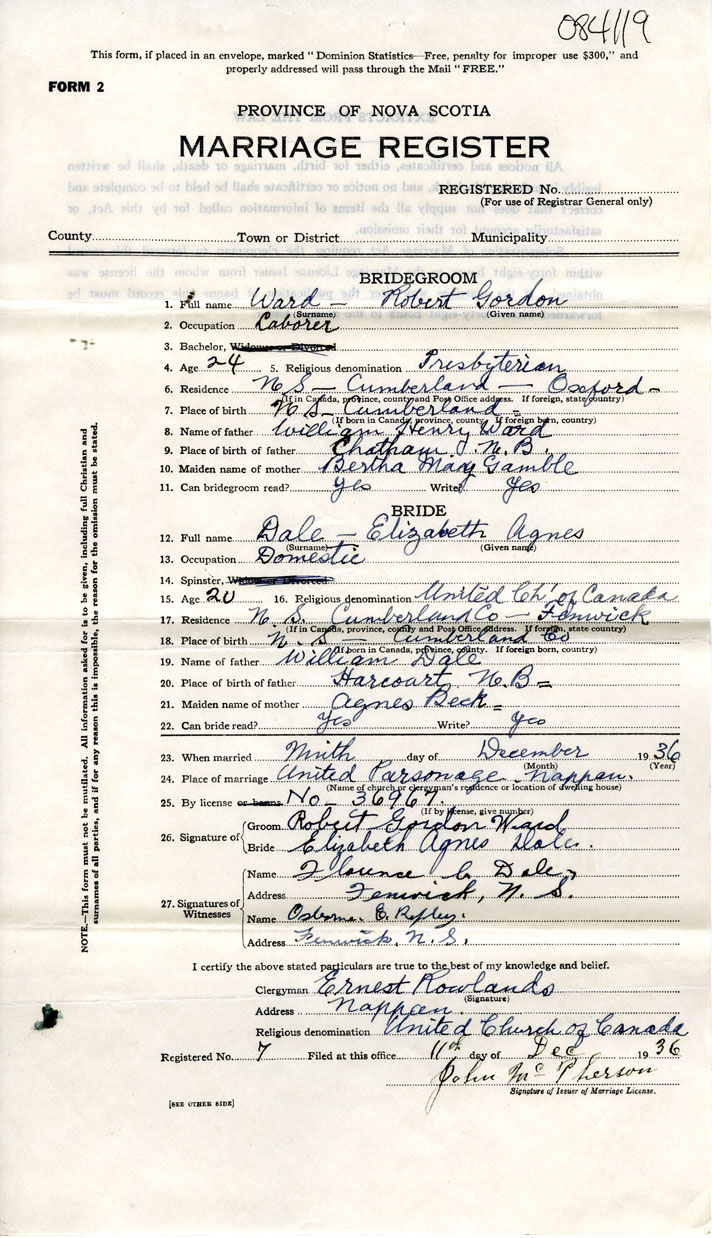 084119
This form, if placed in an envelope, marked "Dominion Statistics—Free, penalty for improper use $300," and
properly addressed will pass through the Mail "FREE."
FORM 2
PROVINCE OF NOVA SCOTIA
MARRIAGE REGISTER
REGISTERED No.
(For use of Registrar General only)
County Town or District Municipality
BRIDEGROOM
1. Full name Ward — Robert Gordon
(Surname) (Given name)
2. Occupation Laborer
3. Bachelor, Widower or Divorced
4. Age 24 5. Religious denomination Presbyterian
6. Residence N S — Cumberland — Oxford —
(If in Canada, province, county and Post Office address. If foreign, state country)
7. Place of birth N. S — Cumberland =
(If born in Canada, province, county. If foreign born, country)
8. Name of father William Henry Ward
9. Place of birth of father Chatham, N. B.
10. Maiden name of mother Bertha May Gamble
11. Can bridegroom read? Yes Write? Yes
BRIDE
12. Full name Dale — Elizabeth Agnes
(Surname) (Given name)
13. Occupation Domestic
14. Spinster, Widow or Divorced
15. Age 20 16. Religious denomination United Ch. of Canada
17. Residence N. S. Cumberland Co — Fenwick
(If in Canada, province, county and Post Office address. If foreign, state country)
18. Place of birth N. S — Cumberland Co
(If born in Canada, province, county. If foreign born, country)
19. Name of father William Dale
20. Place of birth of father Harcourt, N. B =
21. Maiden name of mother Agnes Beck =
22. Can bride read? Yes Write? Yes
23. When married Ninth day of December 1936
(Month) (Year)
24. Place of marriage United Parsonage - Nappan.
(Name of church or clergyman's residence or location of dwelling house)
25. By license or banns No — 36967.
(If by license, give number)
26. Signature of Groom Robert Gordon Ward
Bride Elizabeth Agnes Dale.
27. Signatures of Witnesses Name Florence C. Dale
Address Fenwick, N. S.
Name Osborne E. Ripley.
Address Fenwick, N. S.
I certify the above stated particulars are true to the best of my knowledge and belief.
Clergyman Ernest Rowlands
(Signature)
Address Nappan.
Religious denomination United Church of Canada
Registered No. 7 Filed at this office 11th day of Dec 1936
John McPherson
Signature of Issuer of Marriage License.
[SEE OTHER SIDE]
NOTE.—This form must not be mutilated. All information asked for is to be given, including full Christian and
surnames of all parties, and if for any reason this is impossible, the reason for the omission must be stated.